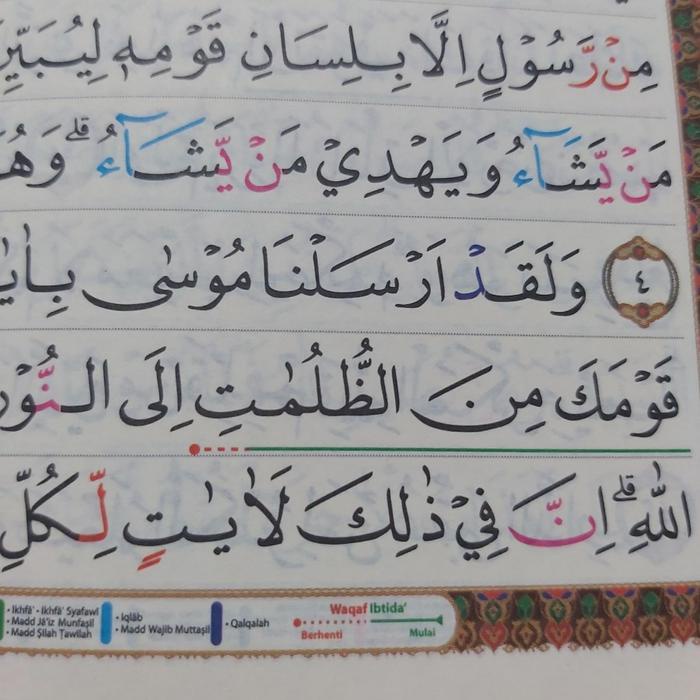 مِنْ رَّسُوْلٍ اِلَّا بِلِسَانِ قَوْمِهٖ لِيُبَيِّنَ
مَنْ يَّشَاۤءُ وَيَهْدِيْ مَنْ يَّشَاۤءُ ۗوَهُ
٤ وَلَقَدْ اَرْسَلْنَا مُوْسٰى بِاٰيٰ
قَوْمَكَ مِنَ الظُّلُمٰتِ اِلَى النُّوْرِ
اللّٰهِ ۗاِنَّ فِيْ ذٰلِكَ لَاٰيٰتٍ لِّكُلِّ
• Ikhfā' - Ikhfā' Syafawī
• Madd Jā'iz Munfaṣil
• Madd Ṣilah Ṭawīlah
• Iqlāb
• Madd Wajib Muttaṣil
• Qalqalah
Waqaf Ibtida'
Berhenti Mulai